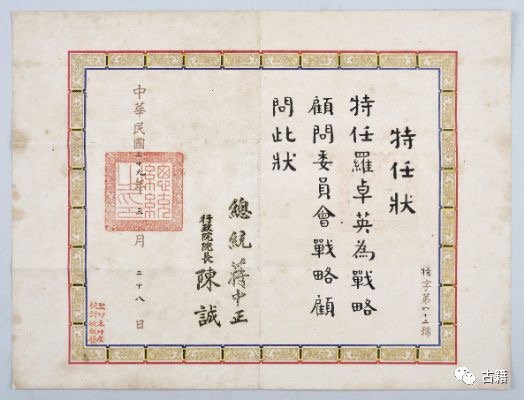 特任狀
特任羅卓英為戰略
顧問委員會戰略顧
問此狀
總統蔣中正
行政院院長陳誠
中華民國三十九年五月二十八日
特字第四十二號
總統之印
古籍